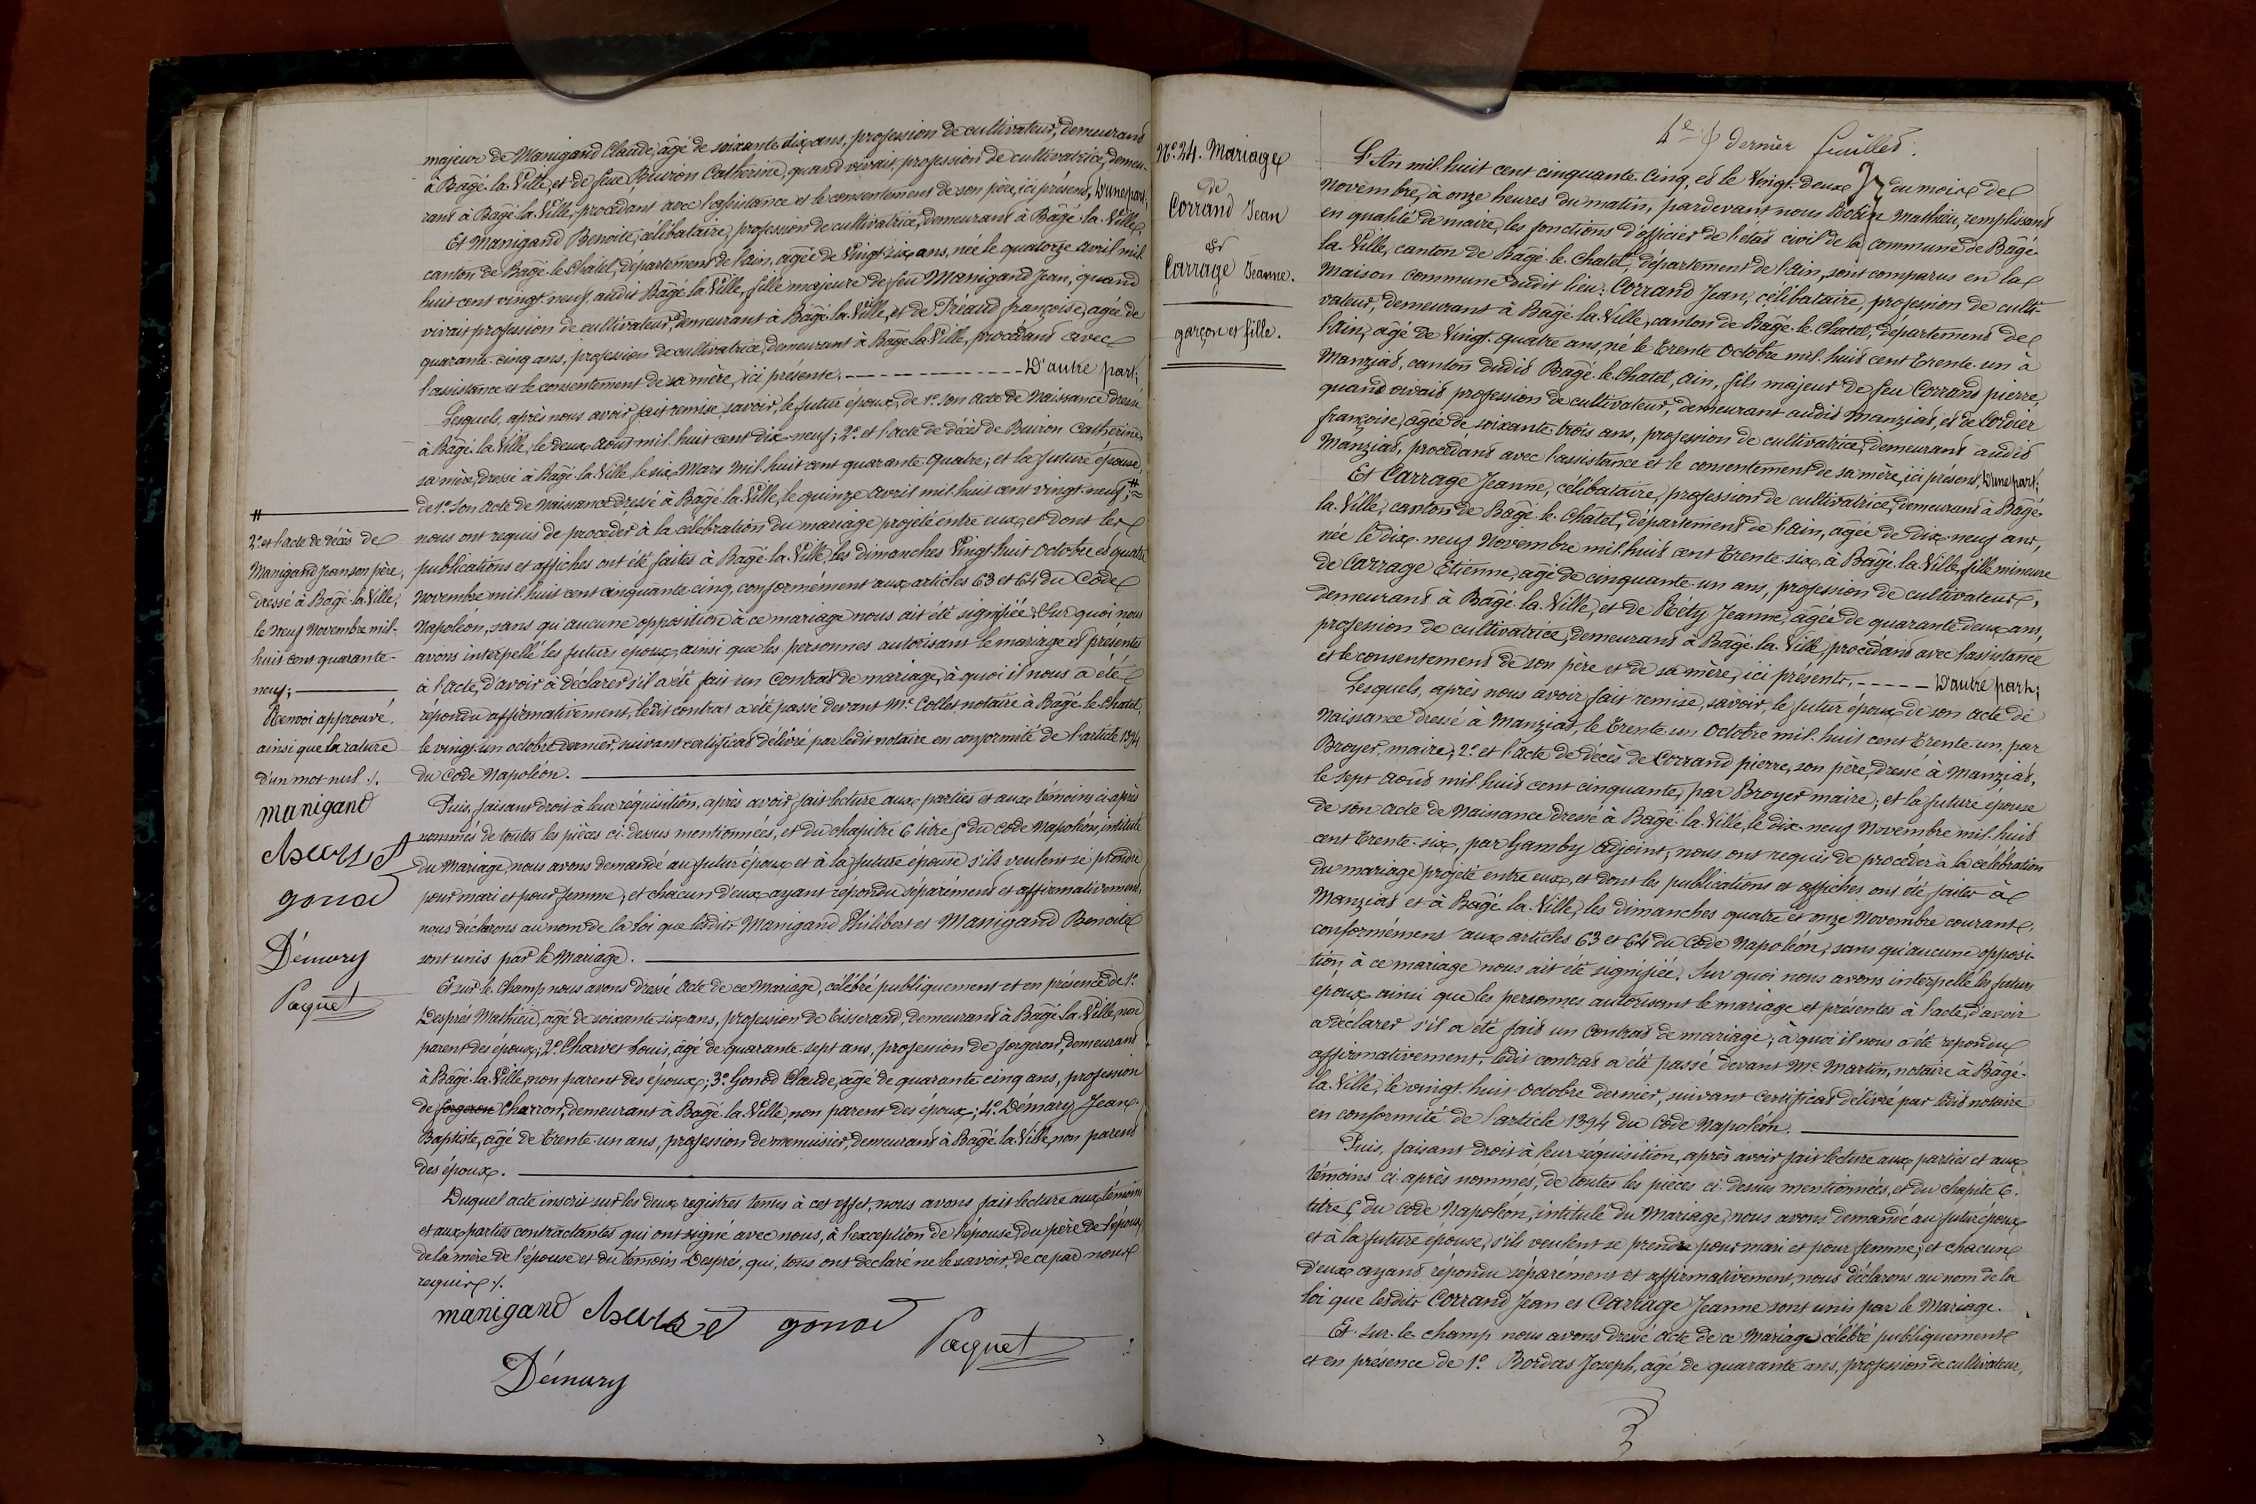 majeur de Manigand Claude, âgé de soixante dix ans, profession de cultivateur, demeurant
à Bâgé-la-Ville, et de feue Buiron Catherine, quand vivait, profession de cultivatrice, demeu-
rant à Bâgé-la-Ville, procédant avec l'assistance et le consentement de son père, ici présent, D'une part;
Et Manigand Benoite, célibataire, profession de cultivatrice, demeurant à Bâgé-la-Ville,
canton de Bâgé-le-Chatel, département de l'ain, agée de Vingt six ans, née le quatorze avril mil
huit cent vingt-neuf, audit Bâgé-la-Ville, fille majeure de feu Manigand Jean, quand
vivait profession de cultivateur, demeurant à Bâgé-la-Ville, et de Tréaud françoise, agée de
quarante-cinq ans, profession de cultivatrice, demeurant à Bâgé-la-Ville, procédant avec
l'assistance et le consentement de sa mère, ici présente. D'autre part;
Lesquels, après nous avoir fait remise, savoir, le futur époux, de 1° son acte de Naissance dressé
à Bâgé-la-Ville, le deux aout mil huit cent dix-neuf; 2° et l'acte de décès de Buiron Catherine
sa mère, dressé à Bâgé-la-Ville le six Mars mil huit cent quarante-quatre; et la future épouse
de 1° son acte de Naissance dressé à Bâgé-la-Ville, le quinze avril mil huit cent vingt-neuf; #
nous ont requis de procéder à la célébration du mariage projeté entre eux, et dont les
publications et affiches ont été faites à Bâgé-la-Ville, les dimanches Vingt-huit Octobre et quatre
Novembre mil huit cent cinquante cinq, conformément aux articles 63 et 64 du Code
Napoléon, sans qu'aucune opposition à ce mariage nous ait été signifiée; Sur quoi nous
avons interpellé les futurs époux, ainsi que les personnes autorisant le mariage et présentes
à l'acte, d'avoir à déclarer s'il a été fait un Contrat de mariage, à quoi il nous a été
répondu affirmativement, ledit contrat a été passé devant Me Collet notaire à Bâgé-le-Chatel,
le vingt-un octobre dernier, suivant certificat délivré par ledit notaire en conformité de l'article 1394
du Code Napoléon.
Puis, faisant droit à leur réquisition, après avoir fait lecture aux parties et aux témoins ci-après
nommés de toutes les pièces ci-dessus mentionnées, et du chapitre 6 titre 5 du Code Napoléon, intitulé
du Mariage, nous avons demandé au futur époux et à la future épouse s'ils veulent se prendre
pour mari et pour femme; et chacun d'eux ayant répondu séparément et affirmativement,
nous déclarons au nom de la Loi que lesdits Manigand Philibert et Manigand Benoite
sont unis par le Mariage.
Et sur-le-champ nous avons dressé acte de ce Mariage, célébré publiquement et en présence de 1°
Després Mathieu, agé de soixante six ans, profession de tisserand, demeurant à Bâgé-la-Ville, non
parent des époux; 2° Charvet Louis, âgé de quarante-sept ans, profession de forgeron, demeurant
à Bâgé-la-Ville, non parent des époux; 3° Gonod Claude, âgé de quarante cinq ans, profession
de forgeron Charron, demeurant à Bâgé-la-Ville, non parent des époux; 4° Démary Jean-
Baptiste, âgé de trente-un ans, profession de menuisier, demeurant à Bâgé-la-Ville, non parent
des époux.
Duquel acte inscrit sur les deux registres tenus à cet effet, nous avons fait lecture aux témoins
et aux parties contractantes qui ont signé avec nous, à l'exception de l'épouse, du père de l'époux,
de la mère de l'épouse et du témoin Després, qui, tous ont déclaré ne le savoir, de ce par nous
requis ./.
manigand Charvet gonod
Paquet
Démary
#
2° et l'acte de décès de
Manigand Jean son père,
dressé à Bâgé-la-Ville,
le Neuf Novembre mil-
huit cent quarante-
neuf;
Renvoi approuvé.
ainsi que la rature
d'un mot nul ./.
manigand
Charvet
gonod
Démary
Paquet
N° 24. Mariage
de
Corrand Jean
&
Carrage Jeanne.
garçon et fille.
4e & dernier feuillet.
L'An mil huit cent cinquante-cinq, et le Vingt-deux du mois de
Novembre, à onze heures du matin, pardevant nous Robin Mathieu, remplissant
en qualité de maire, les fonctions d'officier de l'état civil de la commune de Bâgé-
la-Ville, canton de Bâgé-le-Chatel, département de l'Ain, sont comparus en la
Maison commune audit lieu: Corrand Jean, célibataire, profession de culti-
vateur, demeurant à Bâgé-la-Ville, canton de Bâgé-le-Chatel, département de
l'ain, agé de Vingt-quatre ans, né le trente Octobre mil-huit cent trente-un à
Manziat, canton dudit Bâgé-le-Chatel, ain, fils majeur de feu Corrand pierre,
quand vivait profession de cultivateur, demeurant audit Manziat, et de Cordier
françoise, âgée de soixante trois ans, profession de cultivatrice, demeurant audit
Manziat, procédant avec l'assistance et le consentement de sa mère, ici présent, D'une part;
Et Carrage Jeanne, célibataire, profession de cultivatrice, demeurant à Bâgé-
la-Ville, canton de Bâgé-le-Chatel, département de l'ain, agée de Dix-neuf ans,
née le dix-neuf Novembre mil-huit cent trente-six, à Bâgé-la-Ville, fille mineure
de Carrage Etienne, agé de cinquante-un ans, profession de cultivateur,
demeurant à Bâgé-la-Ville, et de Réty Jeanne, agée de quarante deux ans,
profession de cultivatrice, demeurant à Bâgé-la-Ville, procédant avec l'assistance
et le consentement de son père et de sa mère, ici présents. D'autre part;
Lesquels, après nous avoir fait remise, savoir, le futur époux de son acte de
Naissance dressé à Manziat, le trente-un Octobre mil-huit cent trente-un, par
Broyer, maire; 2° et l'acte de décès de Corrand pierre, son père, dressé à Manziat,
le sept août mil huit cent cinquante, par Broyer maire; et la future épouse
de son acte de Naissance dressé à Bâgé-la-Ville, le dix-neuf Novembre mil-huit
cent trente-six, par Gamby adjoint, nous ont requis de procéder à la célébration
du mariage projeté entre eux, et dont les publications et affiches ont été faites à
Manziat et à Bâgé-la-Ville, les dimanches quatre et onze Novembre courant,
conformément aux articles 63 et 64 du Code Napoléon, sans qu'aucune opposi-
tion à ce mariage nous ait été signifiée, Sur quoi nous avons interpellé les futurs
époux ainsi que les personnes autorisant le mariage et présentes à l'acte, d'avoir
à déclarer s'il a été fait un contrat de mariage; à quoi il nous a été répondu
affirmativement, ledit contrat a été passé devant Me Martin, notaire à Bâgé-
la-Ville, le vingt-huit octobre dernier, suivant certificat délivré par ledit notaire
en conformité de l'article 1394 du Code Napoléon.
Puis, faisant droit à leur réquisition, après avoir fait lecture aux parties et aux
témoins ci-après nommés, de toutes les pièces ci-dessus mentionnées, et du chapitre 6.
titre 5 du Code Napoléon, intitulé du Mariage, nous avons demandé au futur époux
et à la future épouse, s'ils veulent se prendre pour mari et pour femme; et chacun
d'eux ayant répondu séparément et affirmativement, nous déclarons au nom de la
loi que lesdits Corrand Jean et Carrage Jeanne sont unis par le Mariage.
Et sur-le-champ nous avons dressé acte de ce Mariage célébré publiquement
et en présence de 1° Bordas Joseph, âgé de quarante ans, profession de cultivateur,